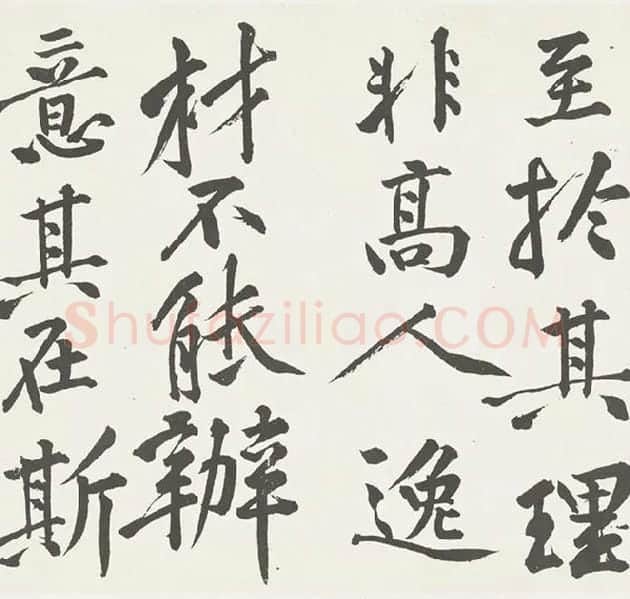 至於其理
非高人逸
材不能辦
意其在斯
Shufaziliao.COM